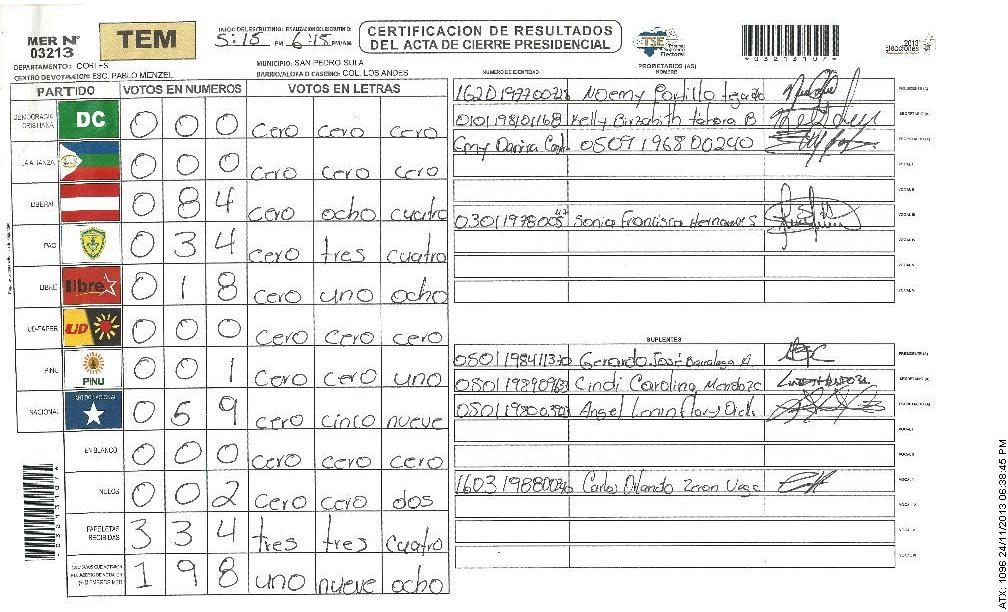 MER Nº 03213
TEM
INICIO DEL ESCRUTINIO: 5:15 PM FINALIZACION DEL ESCRUTINIO: 6:15 PM/AM
CERTIFICACION DE RESULTADOS
DEL ACTA DE CIERRE PRESIDENCIAL
TSE Tribunal Supremo Electoral
2013 elecciones
03213107
DEPARTAMENTO: CORTES
MUNICIPIO: SAN PEDRO SULA
CENTRO DE VOTACION: ESC. PABLO MENZEL
BARRIO/ALDEA O CASERIO: COL. LOS ANDES
PARTIDO VOTOS EN NUMEROS VOTOS EN LETRAS
DEMOCRACIA CRISTIANA DC 0 0 0 cero cero cero
LA ALIANZA 0 0 0 cero cero cero
LIBERAL 0 8 4 cero ocho cuatro
PAC 0 3 4 cero tres cuatro
LIBRE libre 0 1 8 cero uno ocho
UD-FAPER UD 0 0 0 cero cero cero
PINU PINU 0 0 1 cero cero uno
NACIONAL PARTIDO NACIONAL 0 5 9 cero cinco nueve
EN BLANCO 0 0 0 cero cero cero
NULOS 0 0 2 cero cero dos
PAPELETAS RECIBIDAS 3 3 4 tres tres cuatro
1 9 8 uno nueve ocho
PROPIETARIOS (AS)
NUMERO DE IDENTIDAD NOMBRE
Noemy Portillo PRESIDENTE (A)
Kelly SECRETARIO (A)
Emy 0509196800240
VOCAL I
VOCAL II
Sonia Francisca VOCAL III
VOCAL IV
VOCAL V
VOCAL VI
SUPLENTES
Gerardo José PRESIDENTE (A)
Cindi Carolina Mendoza SECRETARIO (A)
Angel
VOCAL I
VOCAL II
Carlos Orlando
VOCAL IV
VOCAL V
03213107
ATX: 1096 24/11/2013 06:38:45 PM